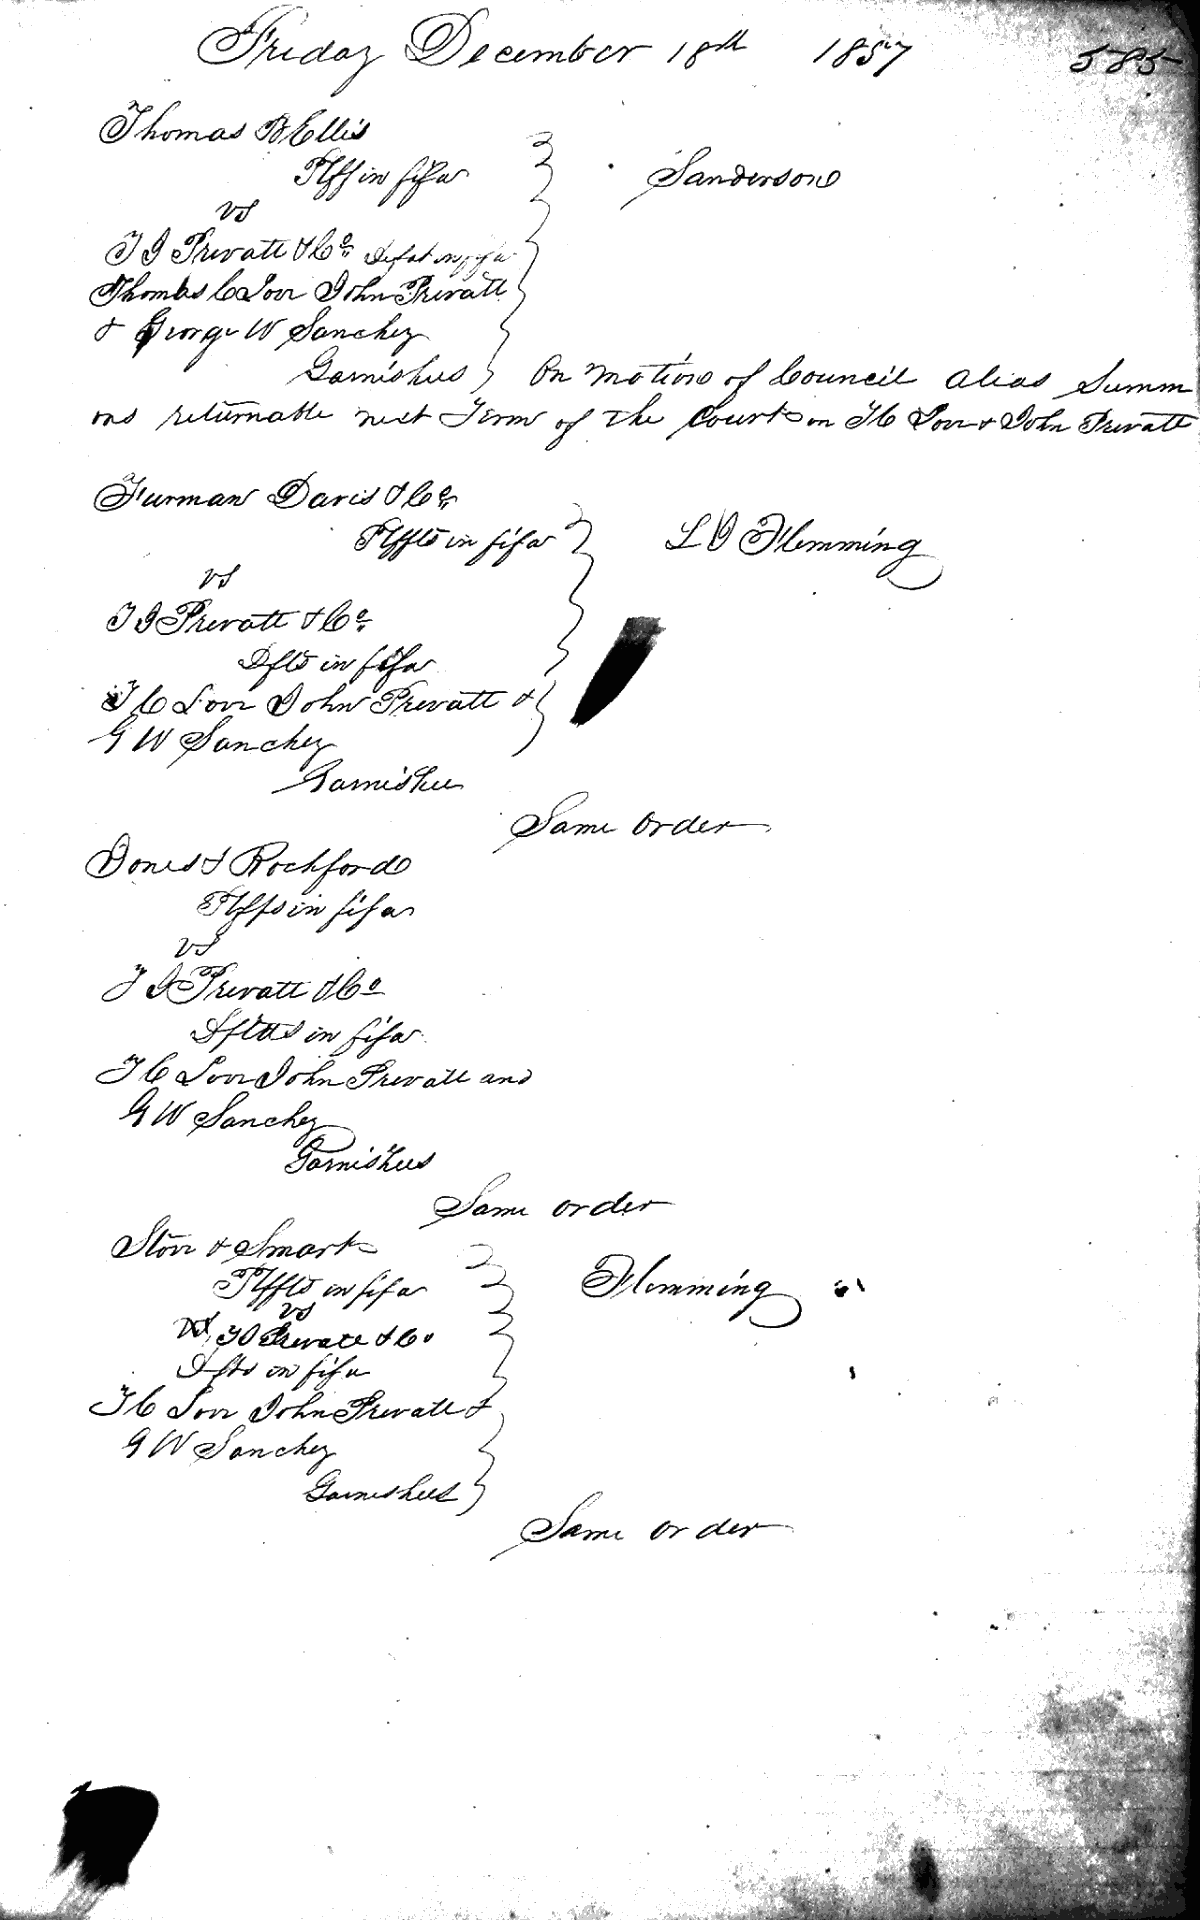 Friday December 18th 1857 585
Thomas B Ellis
Plff in fifa Sanderson
vs
T I Prevatt & Co Defdt in fifa
Thomas C Lovr John Prevatt
& George W Sanchez
Garnishees On Motion of Council alias Summ
ons returnable next Term of the Court on T C Lovr & John Prevatt
Furman Davis & Co
Plffts in fifa L I Flemming
vs
T I Prevatt & Co
Dfts in fifa
T C Lovr John Prevatt &
G W Sanchez
Garnishee
Same order
Jones & Rochford
Plffs in fifa
vs
T I Prevatt & Co
Dftts in fifa
T C Lovr John Prevatt and
G W Sanchez
Garnishees
Same order
Storr & Smart
Plffts in fifa Flemming
vs
T I Prevatt & Co
Dfts in fifa
T C Lovr John Prevatt &
G W Sanchez
Garnishees
Same order